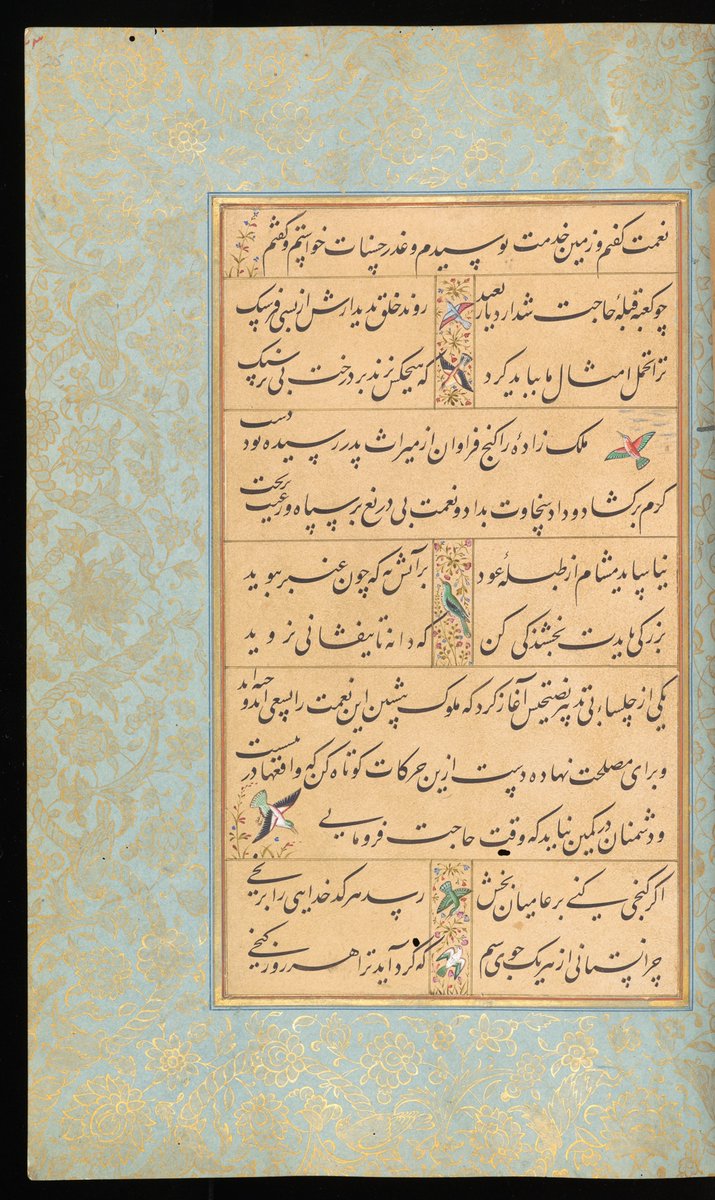 نعمت گفتم و زمین خدمت بوسیدم و عذر جسارت خواستم و گفتم
چو کعبه قبلهٔ حاجت شد از دیار بعید روند خلق بدیدارش از بسی فرسنگ
ترا تحمل امثال ما بباید کرد که هیچکس نزند بر درخت بی بر سنگ
ملک زادهٔ را گنج فراوان از میراث پدر رسیده بود دست
کرم برگشاد و داد سخاوت بداد و نعمت بی دریغ بر سپاه و رعیت بریخت
نیاساید مشام از طبلهٔ عود بر آتش نه که چون عنبر ببوید
بزرگی بایدت بخشندگی کن که دانه تا نیفشانی نروید
یکی از جلساء بی تدبیر نصیحتش آغاز کرد که ملوک پیشین این نعمت را بسعی اندوخته اند
و برای مصلحت نهاده دست ازین حرکات کوتاه کن که واقعها در پیشست
و دشمنان در کمین نباید که وقت حاجت فرومانی
اگر گنجی کنی بر عامیان بخش رسد هر کدخدایی را برنجی
چرا نستانی از هر یک جوی سیم که گرد آید ترا هر روز گنجی